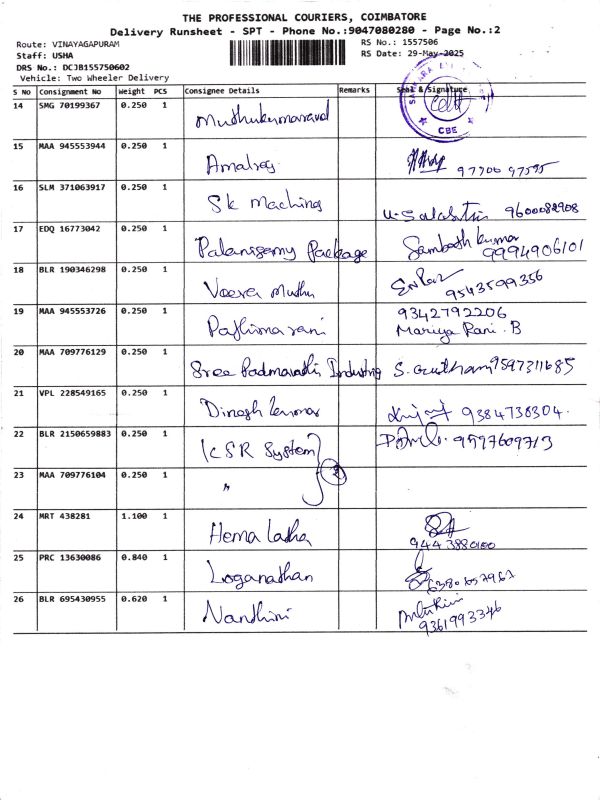 THE PROFESSIONAL COURIERS, COIMBATORE
Delivery Runsheet - SPT - Phone No.:9047080280 - Page No.:2
Route: VINAYAGAPURAM RS No.: 1557506
Staff: USHA RS Date: 29-May-2025
DRS No.: DCJB155750602
Vehicle: Two Wheeler Delivery
S No Consignment No Weight PCS Consignee Details Remarks Seal & Signature
14 SMG 70199367 0.250 1 Muthukumaravel
CBE
15 MAA 945553944 0.250 1 Amalraj
16 SLM 371063917 0.250 1 Sk Maching 9600082908
17 EDQ 16773042 0.250 1 Palanisamy Package Sambath kumar
9994906101
18 BLR 190346298 0.250 1 Veera Muthu
9543599356
19 MAA 945553726 0.250 1 9342792206
Mariya Rani. B
20 MAA 709776129 0.250 1 Sree Padmavathi Industries S. Gautham 9597311685
21 VPL 228549165 0.250 1 Dinesh kumar 9384738304.
22 BLR 2150659883 0.250 1 KSR System 9597609713
23 MAA 709776104 0.250 1 " 2
24 MRT 438281 1.100 1 Hema latha
9443880100
25 PRC 13630086 0.840 1 Loganathan
6380657967
26 BLR 695430955 0.620 1 Nandhini
9361993346